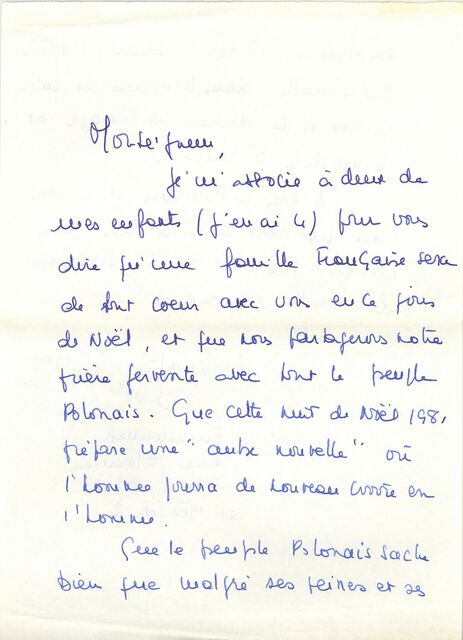 Monseigneur,
Je m'associe à deux de
mes enfants (j'en ai 4) pour vous
dire qu'une famille Française sera
de tout coeur avec vous en ce jour
de Noël, et que nous partagerons notre
prière fervente avec tout le peuple
Polonais. Que cette nuit de Noël 1981
prépare une "aube nouvelle" où
l'homme pourra de nouveau croire en
l'homme.
Que le peuple Polonais sache
bien que malgré ses peines et ses